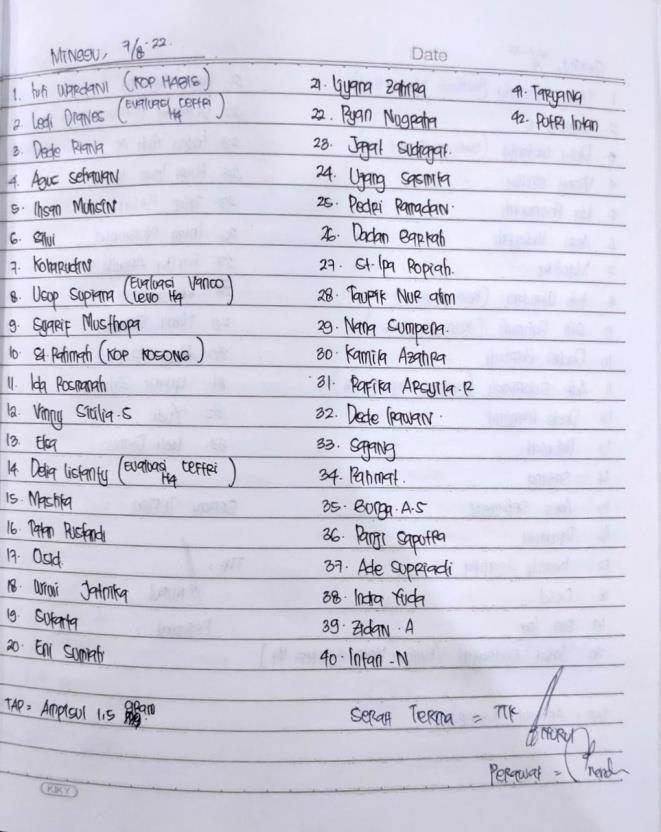 Minggu, 7/8-22.
Date
1. Tuti Wardani (KOP HABIS)
2. Ledi Dianes (Evaluasi Ceftri H4)
3. Dede Riana
4. Aguc Setiawan
5. Ihsan Muhsin
6. Silvi
7. Kotarudin
8. Usop Supiana (Evaluasi Vanco Levo H4)
9. Syarif Musthopa
10. St. Rohmah (KOP KOSONG)
11. Ida Rosnanah
12. Vinny Sicilia.S
13. Elsa
14. Delia Listianty (Evaluasi Ceftri H4)
15. Mastika
16. Tatan Rusfandi
17. Osid.
18. Jatnika
19. Sukarta
20. Eni Sumiati
TAP = Ampisul 1.5 gram
21. Lyana Zahra
22. Ryan Nugraha
23. Jagat Sudrajat.
24. Ujang Sasmita
25. Pedri Ramadan.
26. Dadan Barkah
27. St. Ipa Ropiah.
28. Taupik Nur alim
29. Nana Sumpena.
30. Kamila Azahra
31. Rafika Arsyita.R
32. Dede Irawan.
33. Sajang
34. Rahmat.
35. Bunga.A.S
36. Panji Saputra
37. Ade Supriadi
38. Indra Yuda
39. Zidan.A
40. Intan-N
41. Taryana
42. Putri Intan
Serah Terima = TTK
Nurul
Perawat =
KIKY